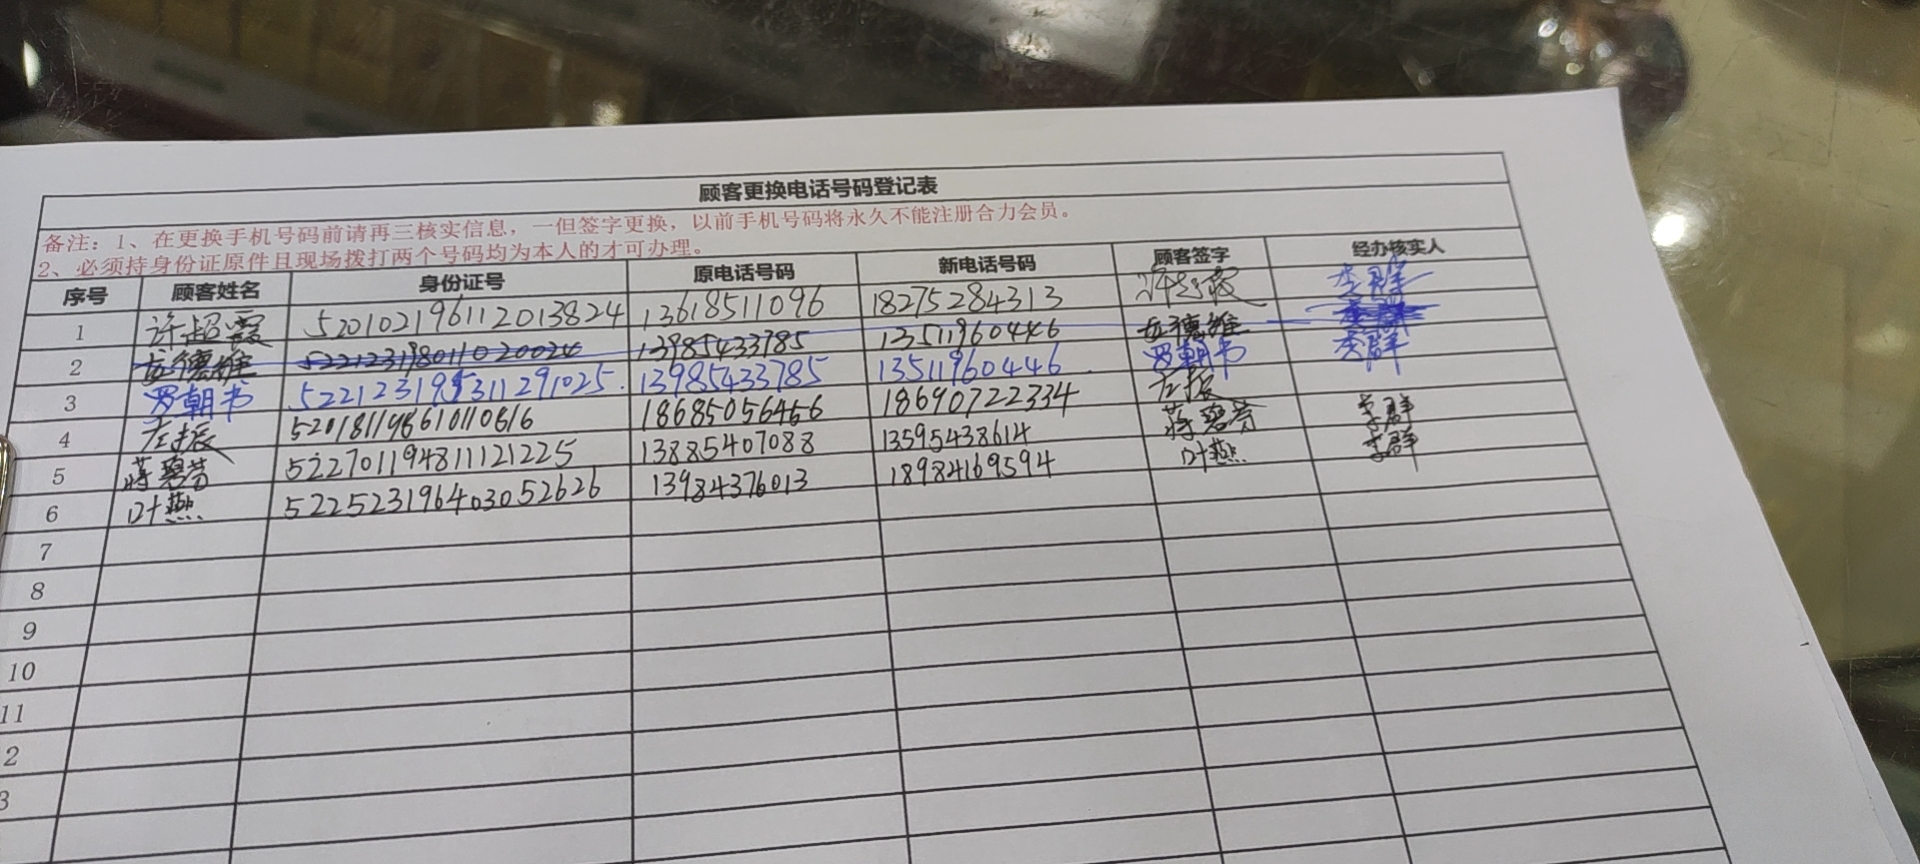 顾客更换电话号码登记表
备注：1、在更换手机号码前请再三核实信息，一但签字更换，以前手机号码将永久不能注册合力会员。
2、必须持身份证原件且现场拨打两个号码均为本人的才可办理。
序号 顾客姓名 身份证号 原电话号码 新电话号码 顾客签字 经办核实人
1 许超霞 520102196112013824 13618511096 18275284313 许超霞 李群
2 德维 522123198011020024 13985433785 13511960446 德维 李群
3 罗朝书 522123195311291025 13985433785 13511960446 罗朝书 李群
4 左振 520181198610110616 18685056466 18690722334 左振
5 蒋碧芬 522701194811121225 13885407088 13595438614 蒋碧芬 李群
6 叶燕 522523196403052626 13984376013 18984169594 叶燕 李群
7
8
9
10
11
2
3